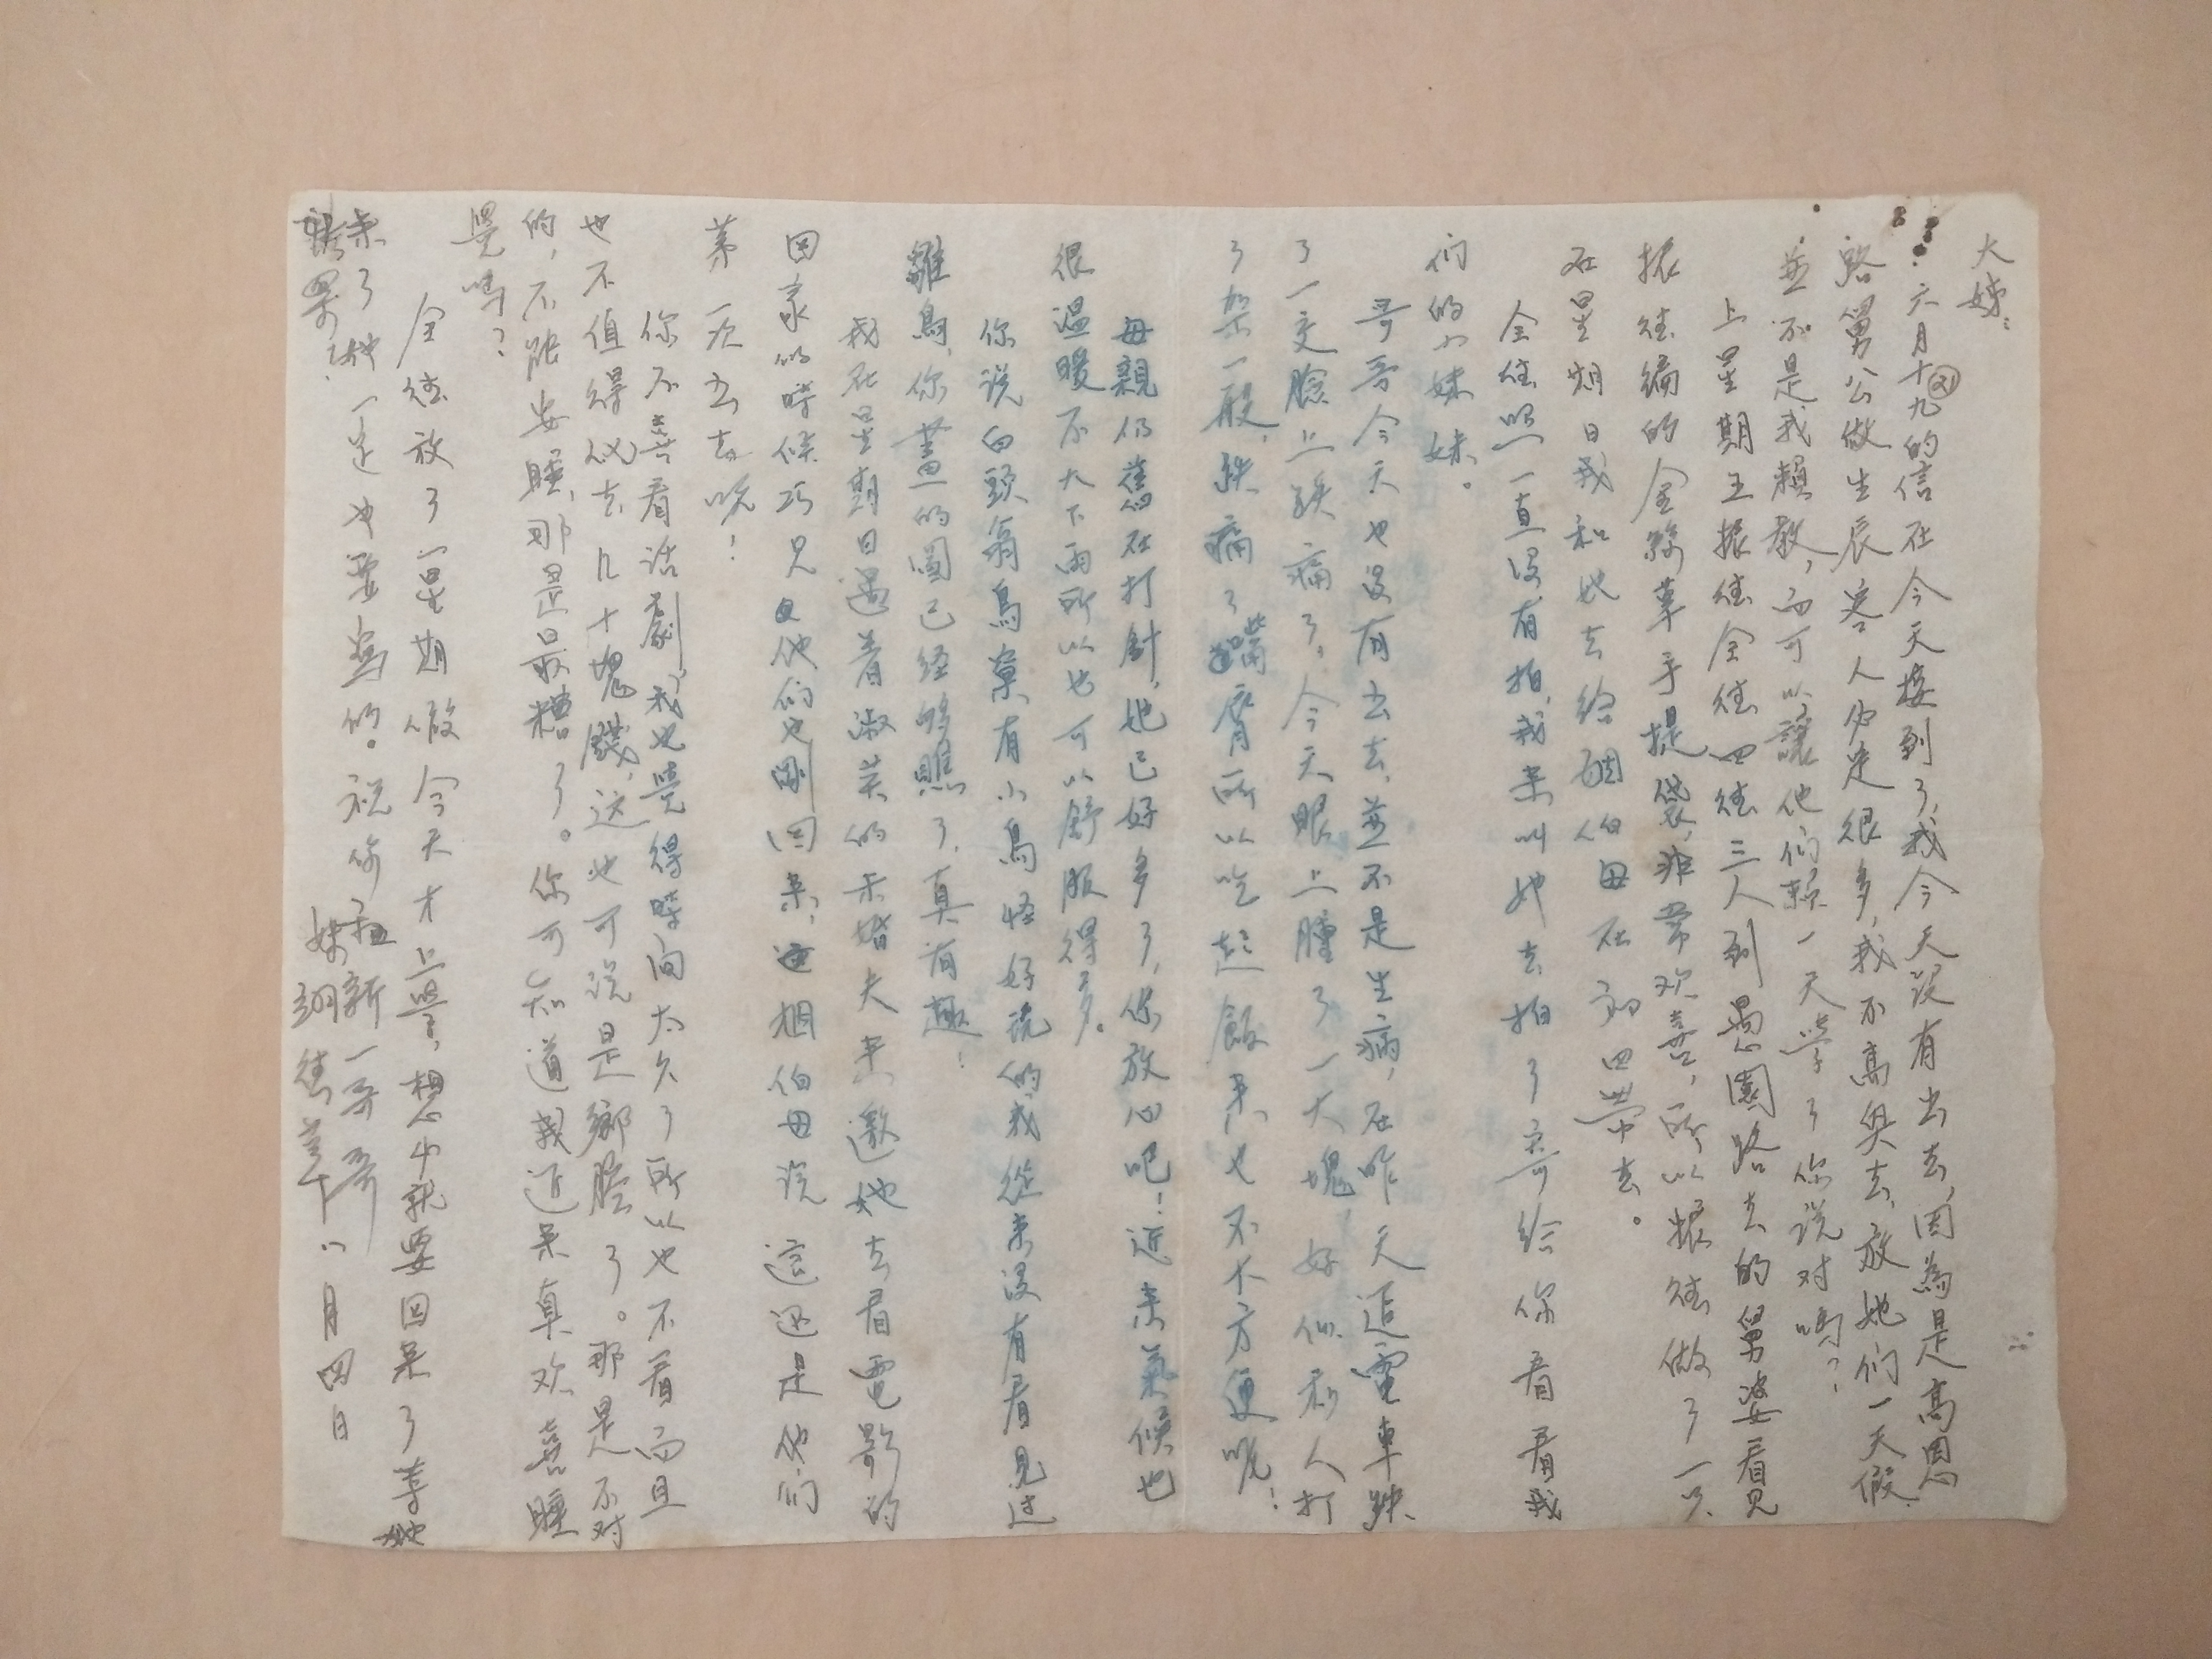 大姊:
六月十九的信在今天接到了,我今天沒有出去,因為是高恩
路舅公做生辰客人必定很多,我不高興去,放她们一天假.
並不是我賴教,而可以讓他们賴一天學了你说对嗎?
上星期五振德全德四德三人到愚園路去的舅婆看見
振德編的金絲草手提袋,非常欢喜,所以振德做了一只
在星期日我和她去给姻伯母在初四帶去。
全德照一直沒有拍,我来叫她去拍了寄给你看看我
们的小妹妹。
哥哥今天也沒有出去,並不是生病,在昨天追電車跌
了一交臉上跌痛了。今天眼上腫了一大塊,好似和人打
了架一般,跌痛了嘴唇所以吃起飯来也不大方便呢!
母親仍舊在打針,她已好多了,你放心吧!近来氣候也
很温暖不大下雨所以也可以舒服得多。
你说白頭翁鳥窠有小鳥怪好玩的我從来沒有看見过
雛鳥,你畫的圖已经够瞧了,真有趣!
我在星期日遇着淑英的未婚夫来邀她去看電影的
回家的時候巧見他们也剛回来,姻伯母说這还是他们
第一次出去呢!
你不喜看话劇,我也覺得時间太久了所以也不看而且
也不值得化去几十塊錢,这也可说是鄉腔了。那是不对
的,不能安睡,那是最糟了。你可知道我近来真欢喜睡
覺嗎?
全德放了一星期假今天才上學,想中就要回来了等她
来了她一定也要寫的。祝你和新一哥哥
快樂!
妹翊德草八月四日